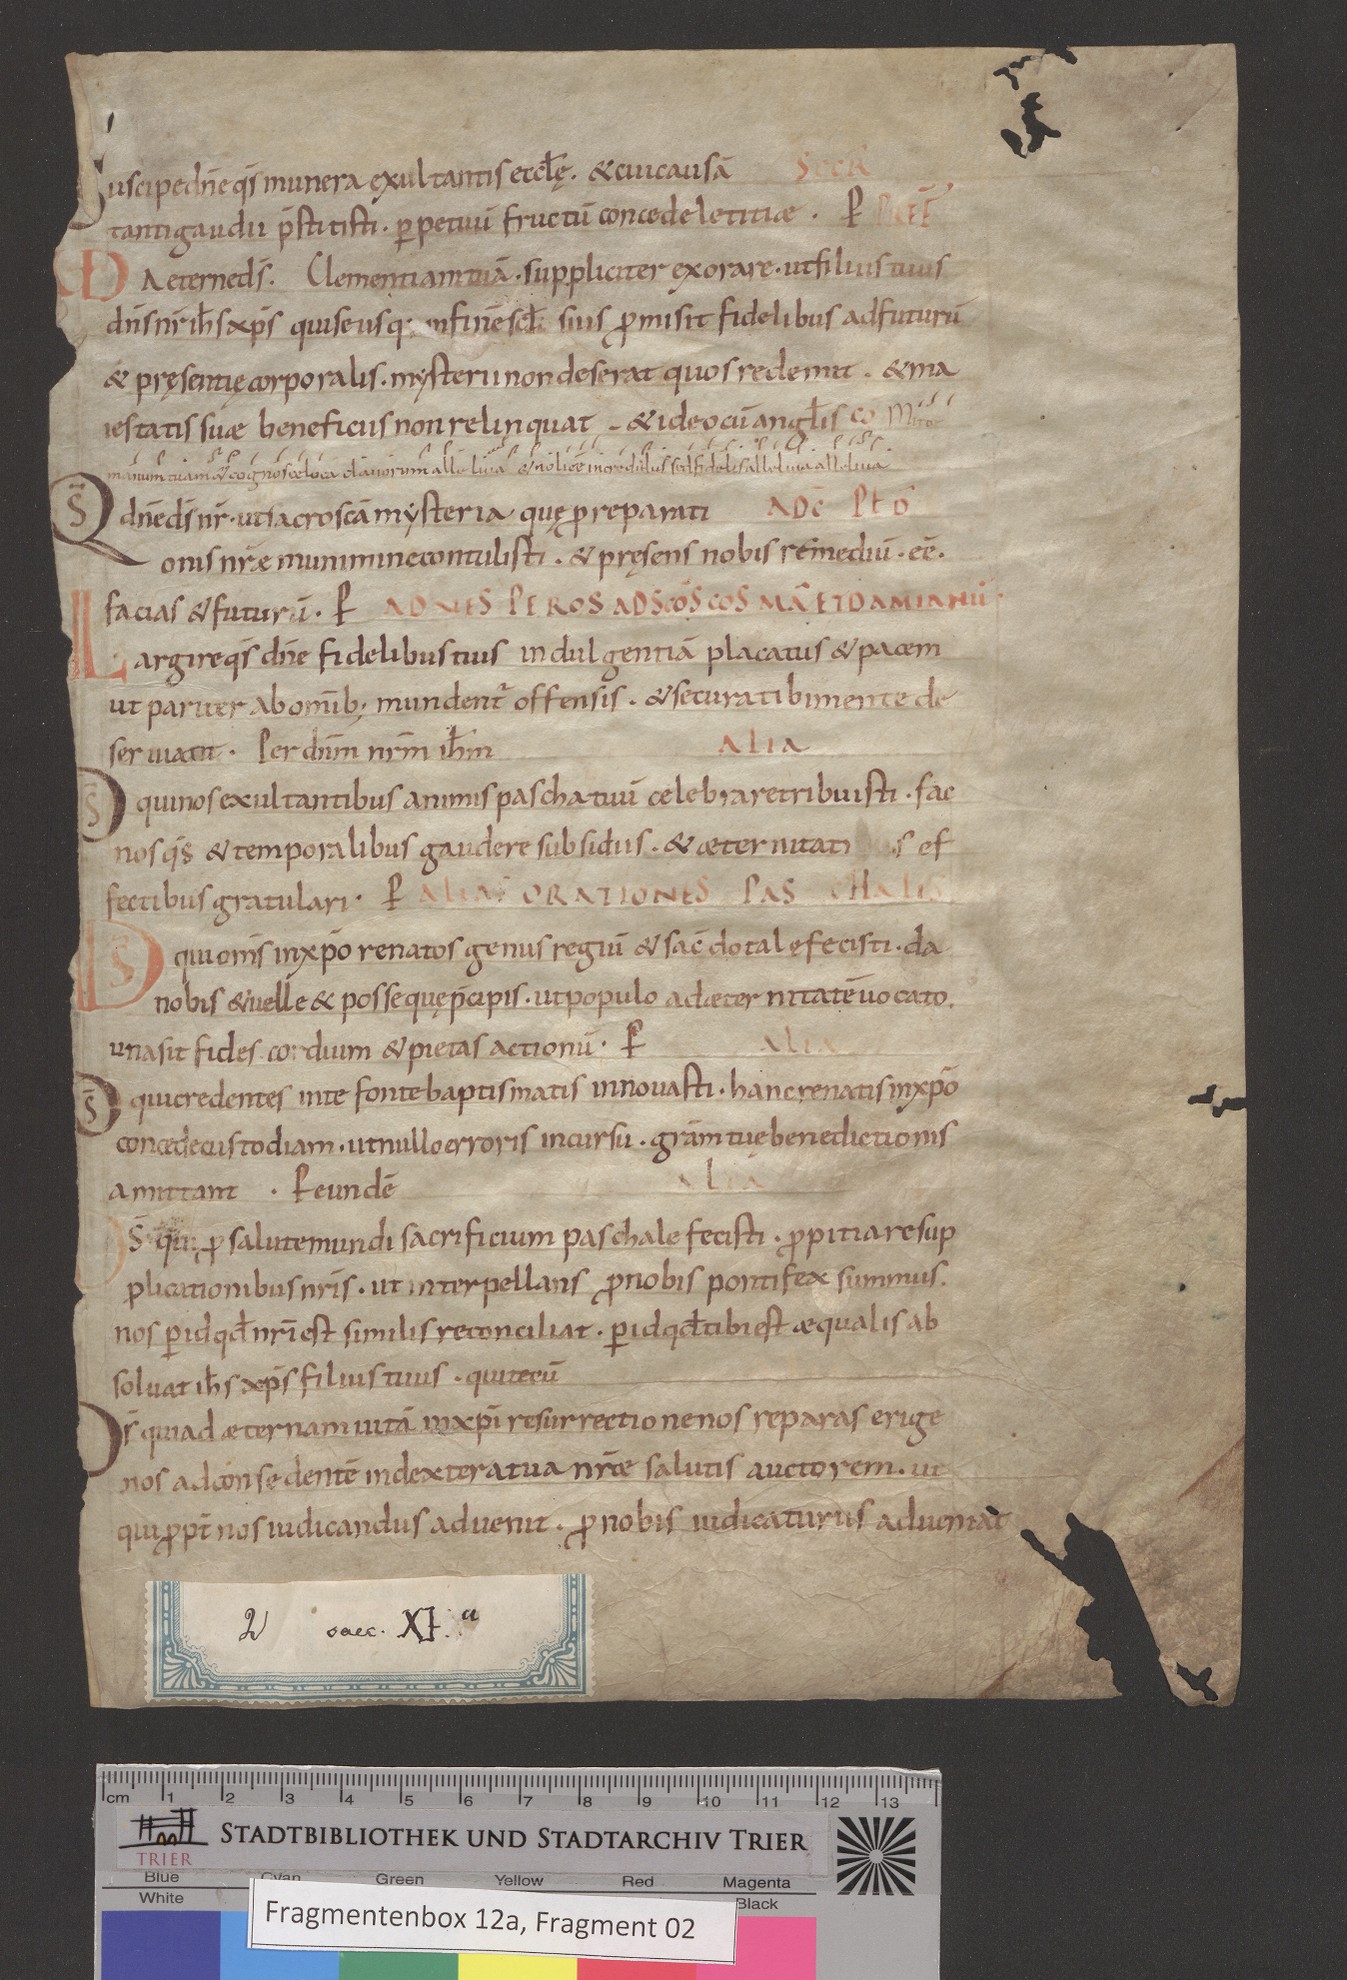 Suscipe dne qs munera exultantis ecclę. & cui causā SECR
tanti gaudii p̄stitisti. ꝑpetuū fructū concede letitiæ. P PREF
VD A eterne ds̄. Clementiam tuā. suppliciter exorare. ut filius tuus
dn̄s nr̄ ih̄s xp̄s qui se usq; in finē scl̄i suis ꝓmisit fidelibus adfuturū
& pręsentię corporalis. mysterii non deserat quos redemit. & ma
iestatis suæ beneficiis non relinquat - & ideo cū angl̄is CO
manum tuam & cognosce loca clauorum alleluia & noli ēē incredulus sed fidelis alleluia alleluia
Qs̄ dn̄e ds̄ nr̄. ut sacroscā mysteria quę ꝓ reparati AD C̄ PŁŌ
onis nr̄æ munimine contulisti. & pręsens nobis remediū. eē.
facias & futurū. P AD NES PEROS AD S̄COS COSMĀ ET DAMIANŪ
Largire qs̄ dn̄e fidelibus tuis indulgentiā placatus & pacem
ut pariter ab omīb; mundent᷑ offensis. & secura tibi mente de
seruiant. Per dn̄m nr̄m ih̄m ALIA
Ds̄ qui nos exultantibus animis pascha tuū celebrare tribuisti. fac
nos qs̄ & temporalibus gaudere subsidiis. & æternitati s ef
fectibus gratulari. P ALIAS ORATIONES PASCHALIS
Ds̄ qui om̄s in xp̄o renatos genus regiū & sac̄dotale fecisti. da
nobis & uelle & posse quę p̄cipis. ut populo ad æternitatē uocato.
una sit fides cordium & pietas actionū. P ALIA
Ds̄ qui credentes in te fonte baptismatis innouasti. hanc renatis in xp̄o
concede custodiam. ut nullo erroris incursu. gr̄am tuę benedictionis
amittant. P eundē ALIA
Ds̄ qui ꝓ salute mundi sacrificium paschale fecisti. ꝓpitiare sup
plicationibus nr̄is. ut interpellans ꝓ nobis pontifex summus.
nos ꝑ id qd̄ nr̄i est similis reconciliat. ꝑ id qd̄ tibi est æqualis ab
soluat ih̄s xp̄s filius tuus. qui tecū
Ds̄ qui ad æternam uitā in xp̄i resurrectione nos reparas erige
nos ad consedentē in dextera tua nr̄æ salutis auctorem. ut
qui ꝓpt̄ nos iudicandus aduenit. ꝓ nobis iudicaturus adueniat
2 saec. XI. a
cm 1 2 3 4 5 6 7 8 9 10 11 12 13
TRIER
STADTBIBLIOTHEK UND STADTARCHIV TRIER
Blue Cyan Green Yellow Red Magenta
White Black
Fragmentenbox 12a, Fragment 02